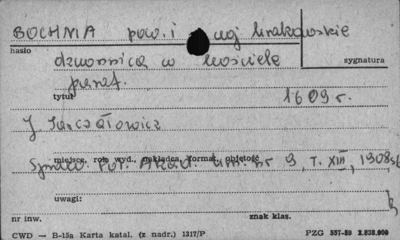 BOCHNIA pow. i woj krakowskie
hasło
dzwonnica w kościele
sygnatura
paraf.
tytuł
1609 r.
J
miejsce, rok wyd., nakładca, format, objętość
Spraw. Akad. Um. nr 9, T. XIII, 1908
uwagi:
nr inw.
znak klas.
CWD — B-15a Karta katal. (z nadr.) 1317/P
PZG